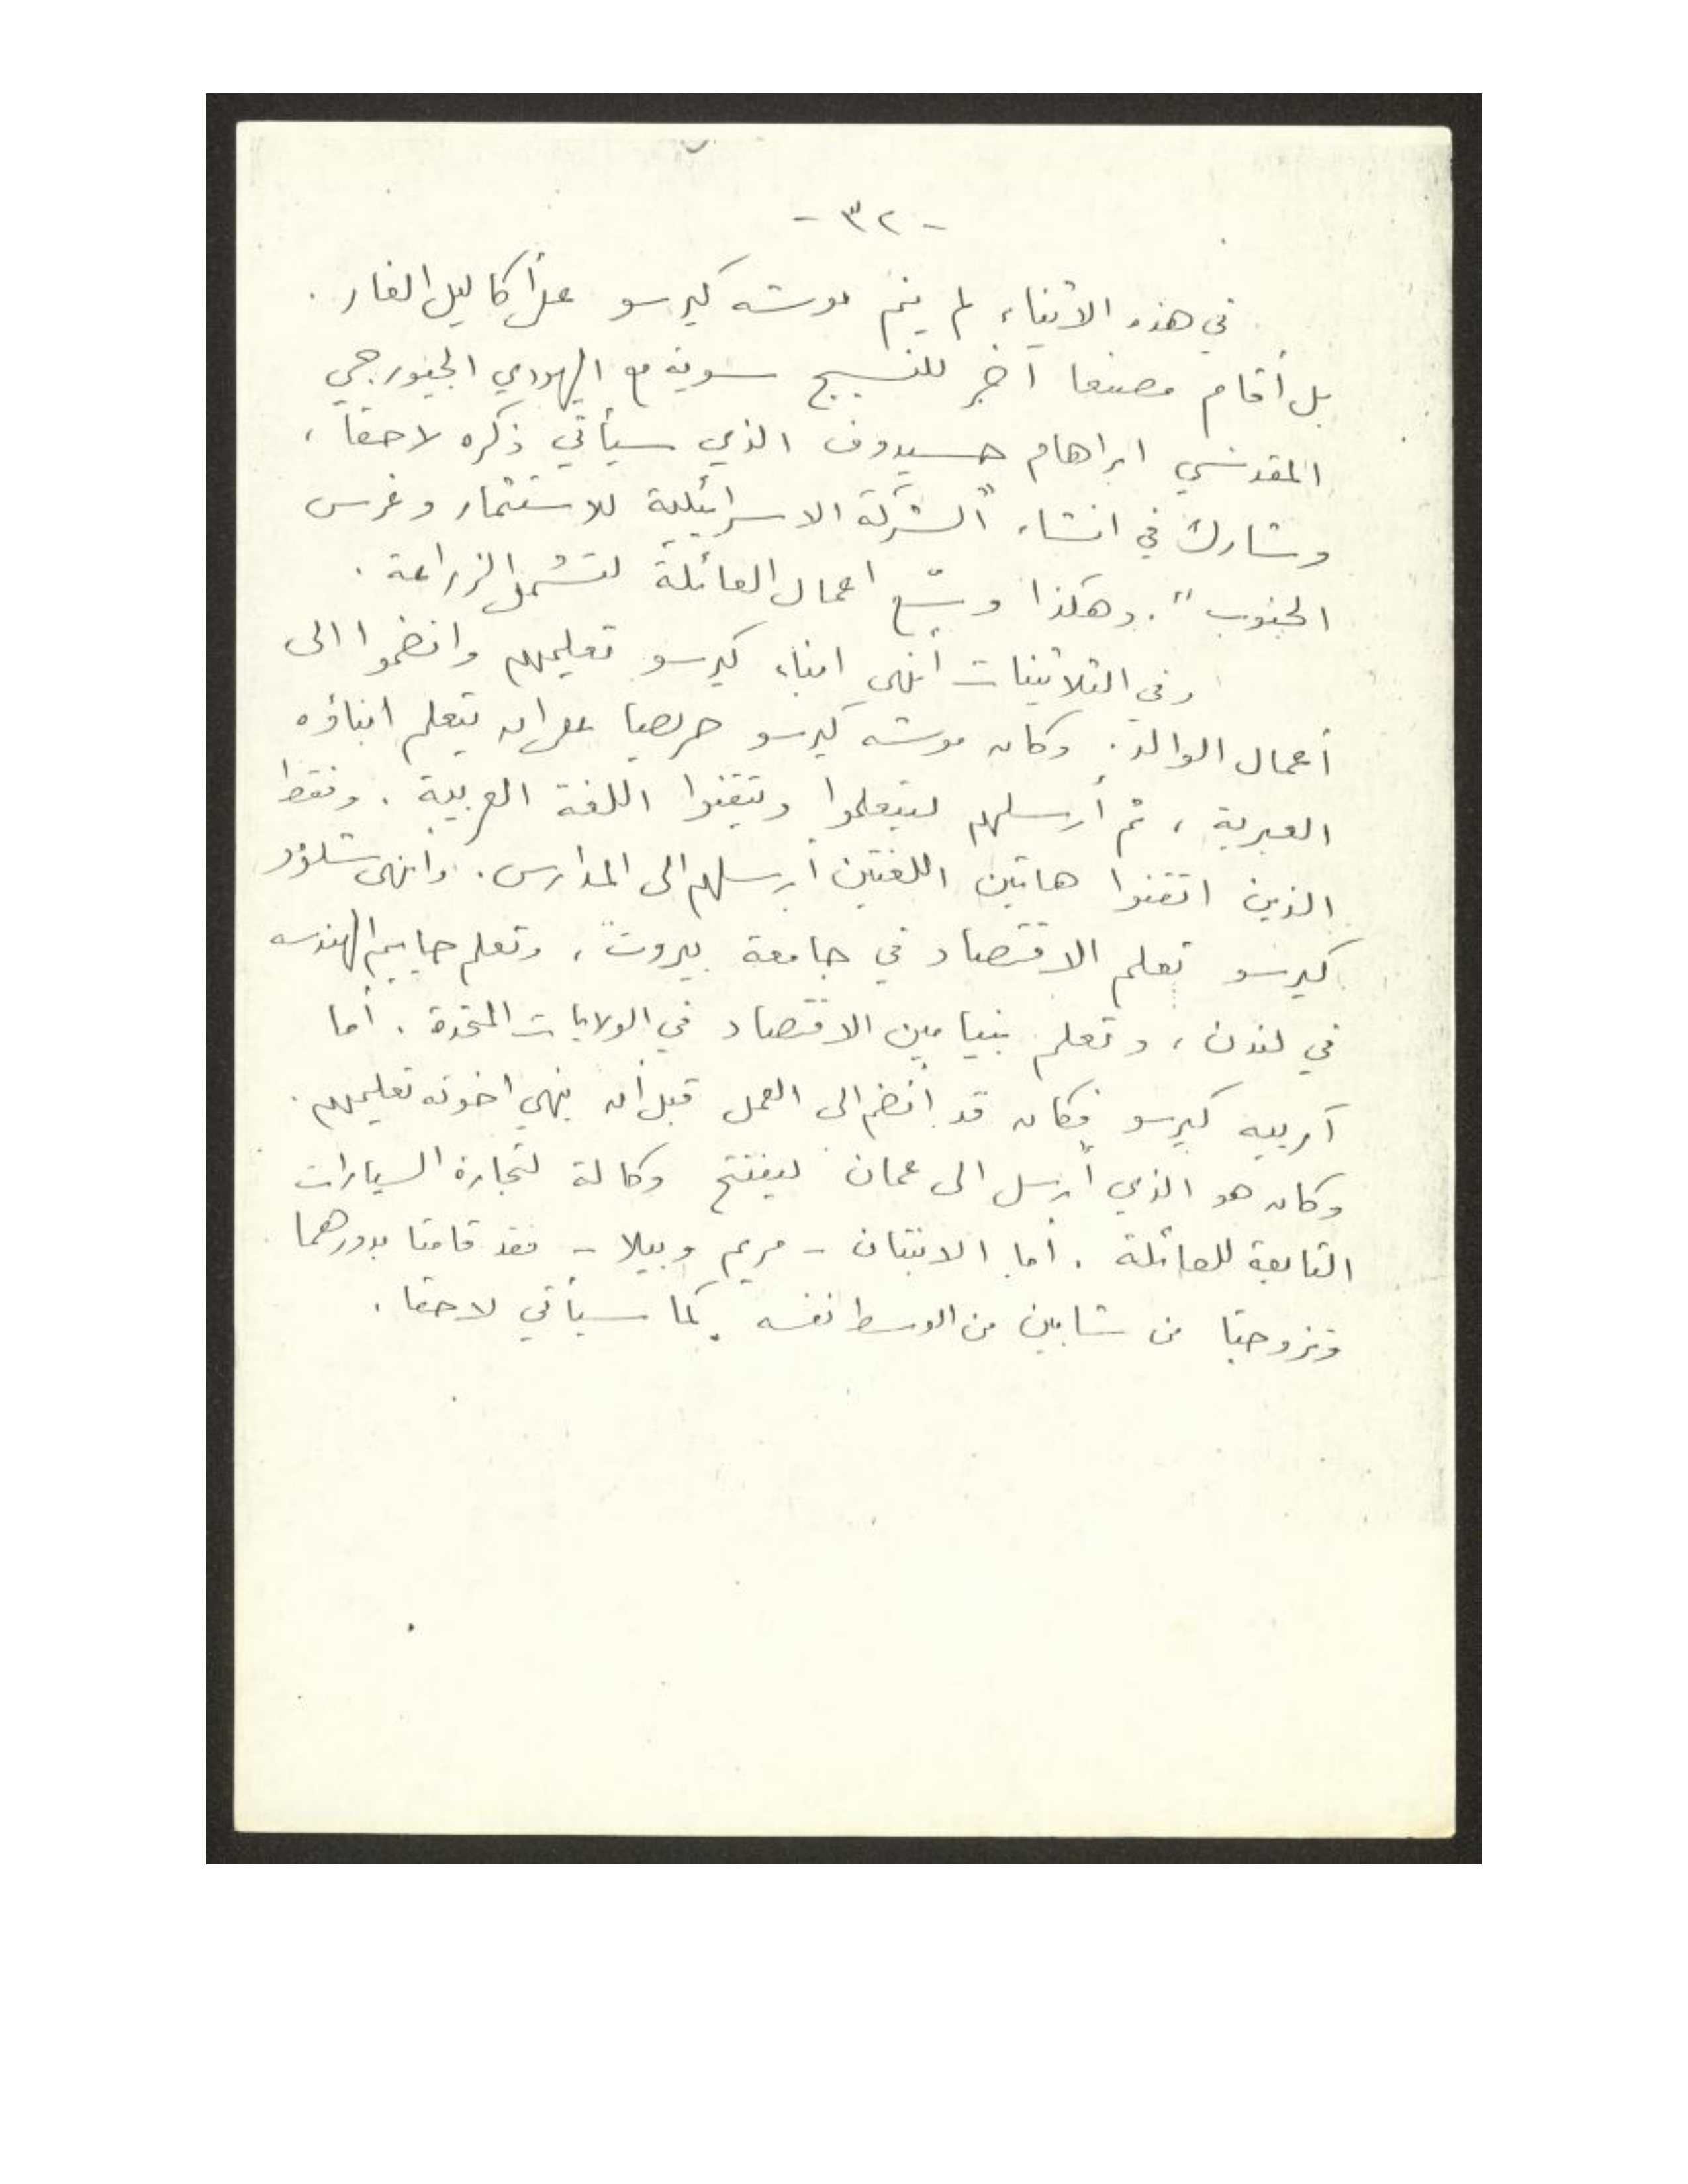 - ٣٢ -
في هذه الاثناء، لم ينم موشه كيرسو على أكاليل الغار.
بل أقام مصنعا آخر للنسيج سوية مع اليهودي الجيورجي
المقدسي ابراهام حسيدوف الذي سيأتي ذكره لاحقاً،
وشارك في انشاء "الشركة الاسرائيلية للاستثمار وغرس
الجنوب". وهكذا وسّع اعمال العائلة لتشمل الزراعة.
وفي الثلاثينات أنهى ابناء كيرسو تعليمهم وانضموا الى
أعمال الوالد. وكان موشه كيرسو حريصا على ان يتعلم ابناؤه
العبرية، ثم أرسلهم ليتعلموا ويتقنوا اللغة العربية. وفقط
الذين اتقنوا هاتين اللغتين أرسلهم الى المدارس. وأنهى شلومو
كيرسو تعلم الاقتصاد في جامعة بيروت، وتعلم حاييم الهندسه
في لندن، وتعلم بنيامين الاقتصاد في الولايات المتحدة. أما
آرييه كيرسو فكان قد انضم الى العمل قبل أن ينهي اخوته تعليمهم.
وكان هو الذي أرسل الى عمان ليفتتح وكالة لتجارة السيارات
التابعة للعائلة. أما الابنتان - مريم وبيلا - فقد قامتا بدورهما
وتزوجتا من شابين من الوسط نفسه كما سيأتي لاحقا.